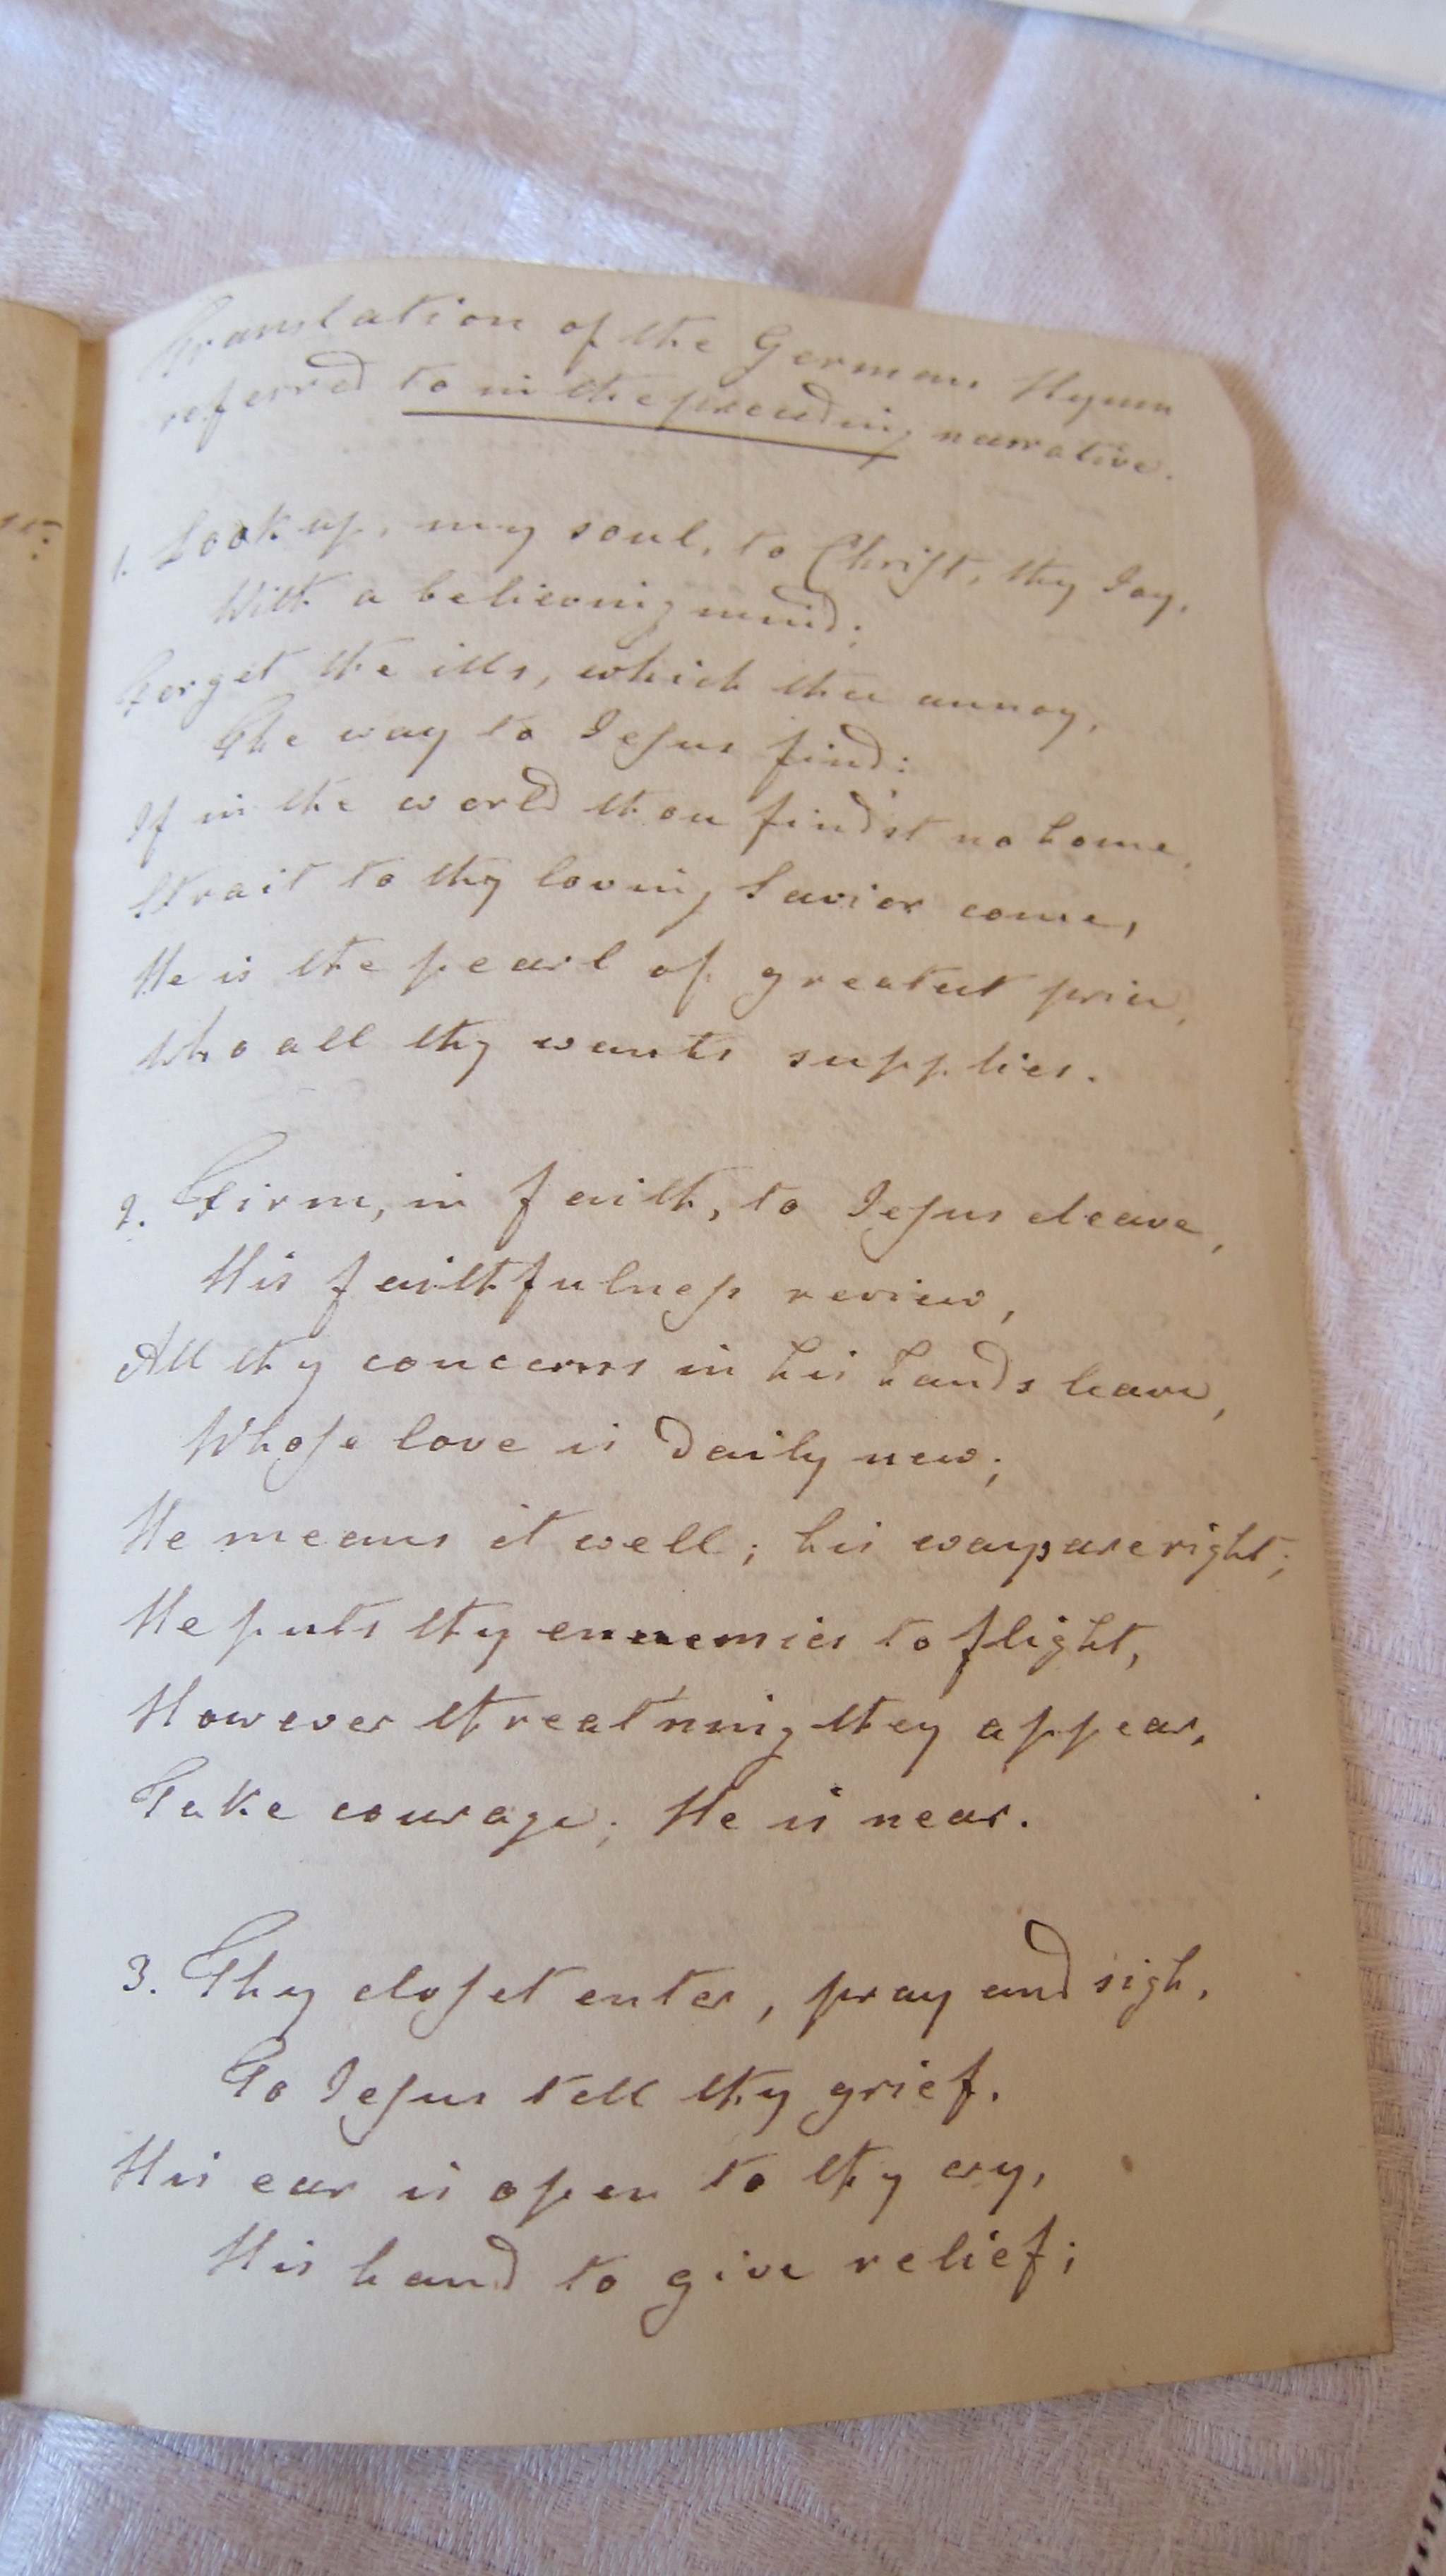 Translation of the German Hymn
referred to in the preceeding narrative.
1. Look up, my soul, to Chriſt, thy Joy,
With a believing mind;
Forget the ills, which thee annoy,
The way to Jeſus find:
If in the world thou find'st no home,
Strait to thy loving Savior come,
He is the pearl of greatest price,
Who all thy wants supplies.
2. Firm, in faith, to Jeſus cleave,
His faithfulneſs review,
All thy concerns in his hands leave,
Whoſe love is daily new;
He means it well; his ways are right;
He puts thy ennemies to flight,
However threat'ning they appear,
Take courage; He is near.
3. Thy cloſet enter, pray and sigh,
To Jeſus tell thy grief.
His ear is open to thy cry,
His hand to give relief;